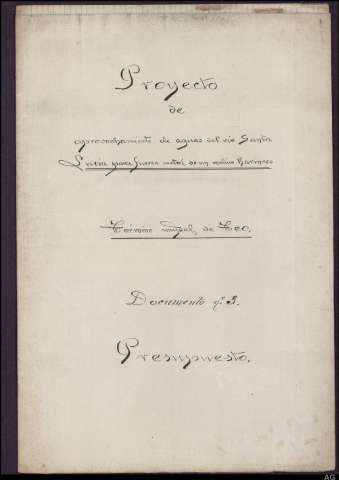 Proyecto
de
aprovechamiento de aguas del río Santa
Lucía para fuerza motriz de un molino harinero
Término mupal de Teo.
Documento nº 3.
Presupuesto.
AG